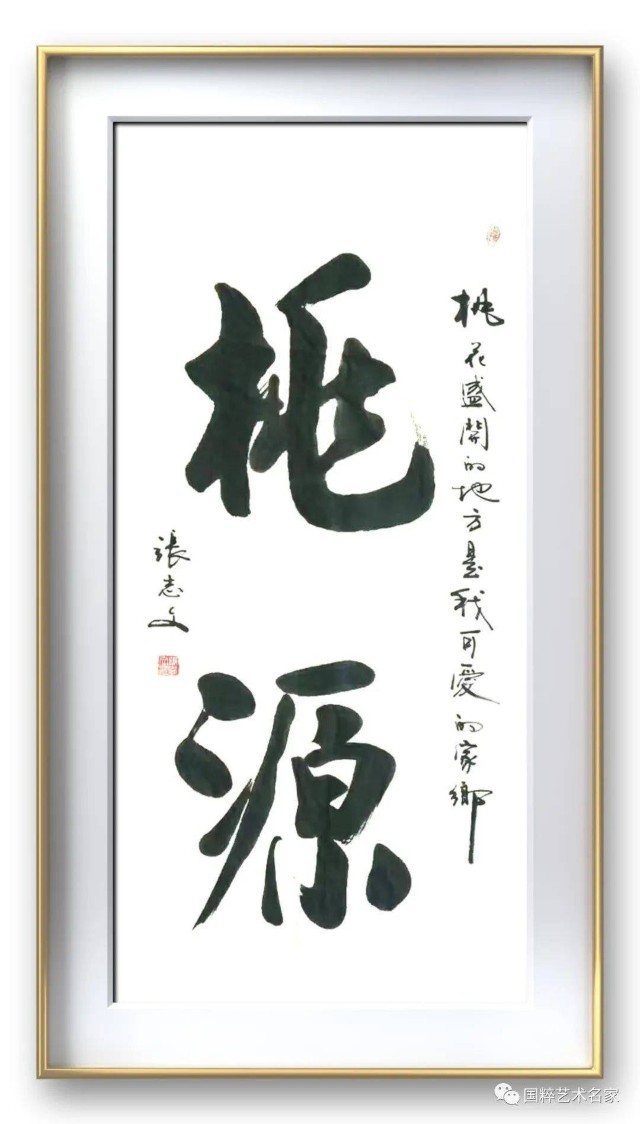 桃花盛開的地方是我可愛的家鄉
桃源
張志文
国粹艺术名家